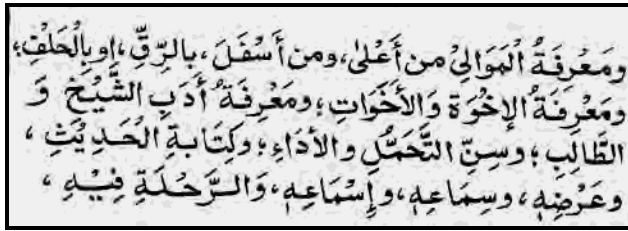 ومَعْرِفَةُ الْمَوَالِيْ من أَعْلىٰ، ومن أَسْفَلَ، بِالرِّقِّ، اوبِالْحَلْفِ؛
ومَعْرِفَةُ الإخْوَة وَالأَخَوَاتِ؛ ومَعْرِفَةُ أَدَبِ الشَّيْخِ وَ
الطَّالِبِ؛ وسِنِّ التَّحَمُّلِ والأدَاءِ؛ وكِتَابةِ الْحَدِيْثِ،
وعَرْضِهٖ، وسِمَاعِهٖ، وإِسْمَاعِهٖ، وَالرَّحْلَةِ فِيْهِ،